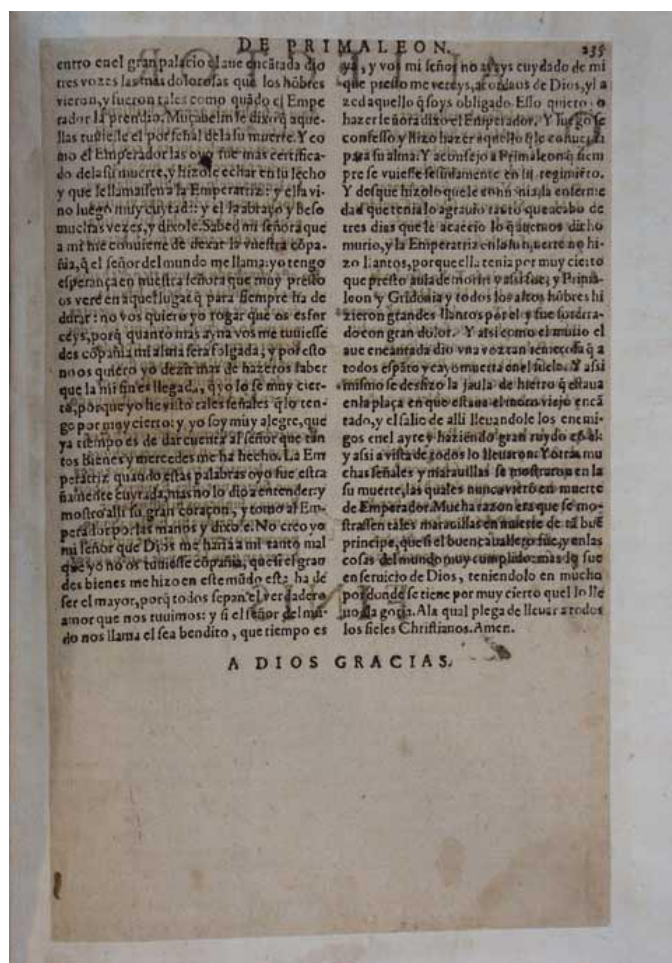 DE PRIMALEON.
235
entro enel gran palacio el aue encãtada dio
tres vozes las mas dolorosas que los hõbres
vieron, y fueron tales como quãdo el Empe
rador la prendio. Muçabelin le dixo q̃ aque-
llas tuuiesse el por señal de la su muerte. Y co
mo el Emperador las oyo fue mas certifica-
do dela su muerte, y hizose echar en su lecho
y que le llamassen a la Emperatriz: y ella vi-
no luego muy cuytada: y el la abraço y beso
muchas vezes, y dixole. Sabed mi señora que
a mi me conuiene de dexar la vuestra cõpa-
ñia, q̃ el señor del mundo me llama: yo tengo
esperança en nuestra señora que muy presto
os vere en aquel lugar q̃ para siempre ha de
durar: no vos quiero yo rogar que os esfor
ceys, porq̃ quanto mas ayna vos me tuuiesse
des cõpañia mi alma sera folgada, y por esto
no os quiero yo dezir mas de hazeros saber
que la mi fin es llegada, q̃ yo lo se muy cier-
to, porque yo he visto tales señales q̃ lo ten-
go por muy cierto: y yo soy muy alegre, que
ya tiempo es de dar cuenta al señor que tan
tos bienes y mercedes me ha hecho. La Em
peratriz quando estas palabras oyo fue estra
ñamente cuytada, mas no lo dio a entender: y
mostro alli su gran coraçon, y tomo al Em-
perador por las manos y dixole. No creo yo
mi señor que Dios me haria a mi tanto mal
que yo no os tuuiesse cõpañia, que si el gran
des bienes me hizo en este mũdo este ha de
ser el mayor, porq̃ todos sepan el verdadero
amor que nos tuuimos: y si el señor del mũ-
do nos llama el sea bendito, que tiempo es
ya, y vos mi señor no ayays cuydado de mi
que presto me vereys, acordaus de Dios, y f a
zed aquello q̃ soys obligado. Esso quiero yo
hazer señora dixo el Emperador. Y luego se
confesso y hizo hazer aquello q̃ le conuenia
para su alma. Y aconsejo a Primaleon q̃ siem
pre se vuiesse sesudamente en su regimiẽto.
Y desque hizo lo que le conuenia, la enferme
dad que tenia lo agrauio tãto que acabo de
tres dias que le acaecio lo q̃ auemos dicho
murio, y la Emperatriz en la su muerte no hi-
zo llantos, porque ella tenia por muy cierto
que presto auia de morir y assi fue: y Prima-
leon y Gridonia y todos los altos hõbres hi
zieron grandes llantos por el: y fue soterra-
do con gran dolor. Y assi como el murio el
aue encantada dio vna voz tan temerosa q̃ a
todos espãto y cayo muerta en el suelo. Y assi
mismo se deshizo la jaula de hierro q̃ estaua
en la plaça en que estaua el moro viejo encã
tado, y el salio de alli lleuandole los enemi-
gos enel ayre y haziendo gran ruydo en el:
y assi a vista de todos lo lleuaron: Y otras mu
chas señales y marauillas se mostraron en la
su muerte, las quales nunca vierõ en muerte
de Emperador. Mucha razon era que se mo-
strassen tales marauillas en muerte de tã buẽ
principe, que si el buen cauallero fue, y en las
cosas del mundo muy cumplido: mas lo fue
en seruicio de Dios, teniendolo en mucho
por donde se tiene por muy cierto quel lo lle
uo a la gloria. Ala qual plega de lleuar a todos
los fieles Christianos. Amen.
A DIOS GRACIAS.